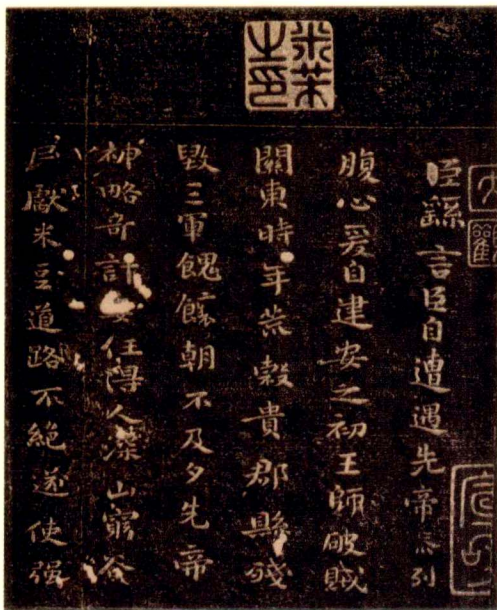 米芾之印
臣繇言臣自遭遇先帝忝列
腹心爰自建安之初王師破賊
關東時年荒穀貴郡縣殘
毀三軍餽饟朝不及夕先帝
神略奇計委任得人深山窮谷
民獻米豆道路不絕遂使强
大觀